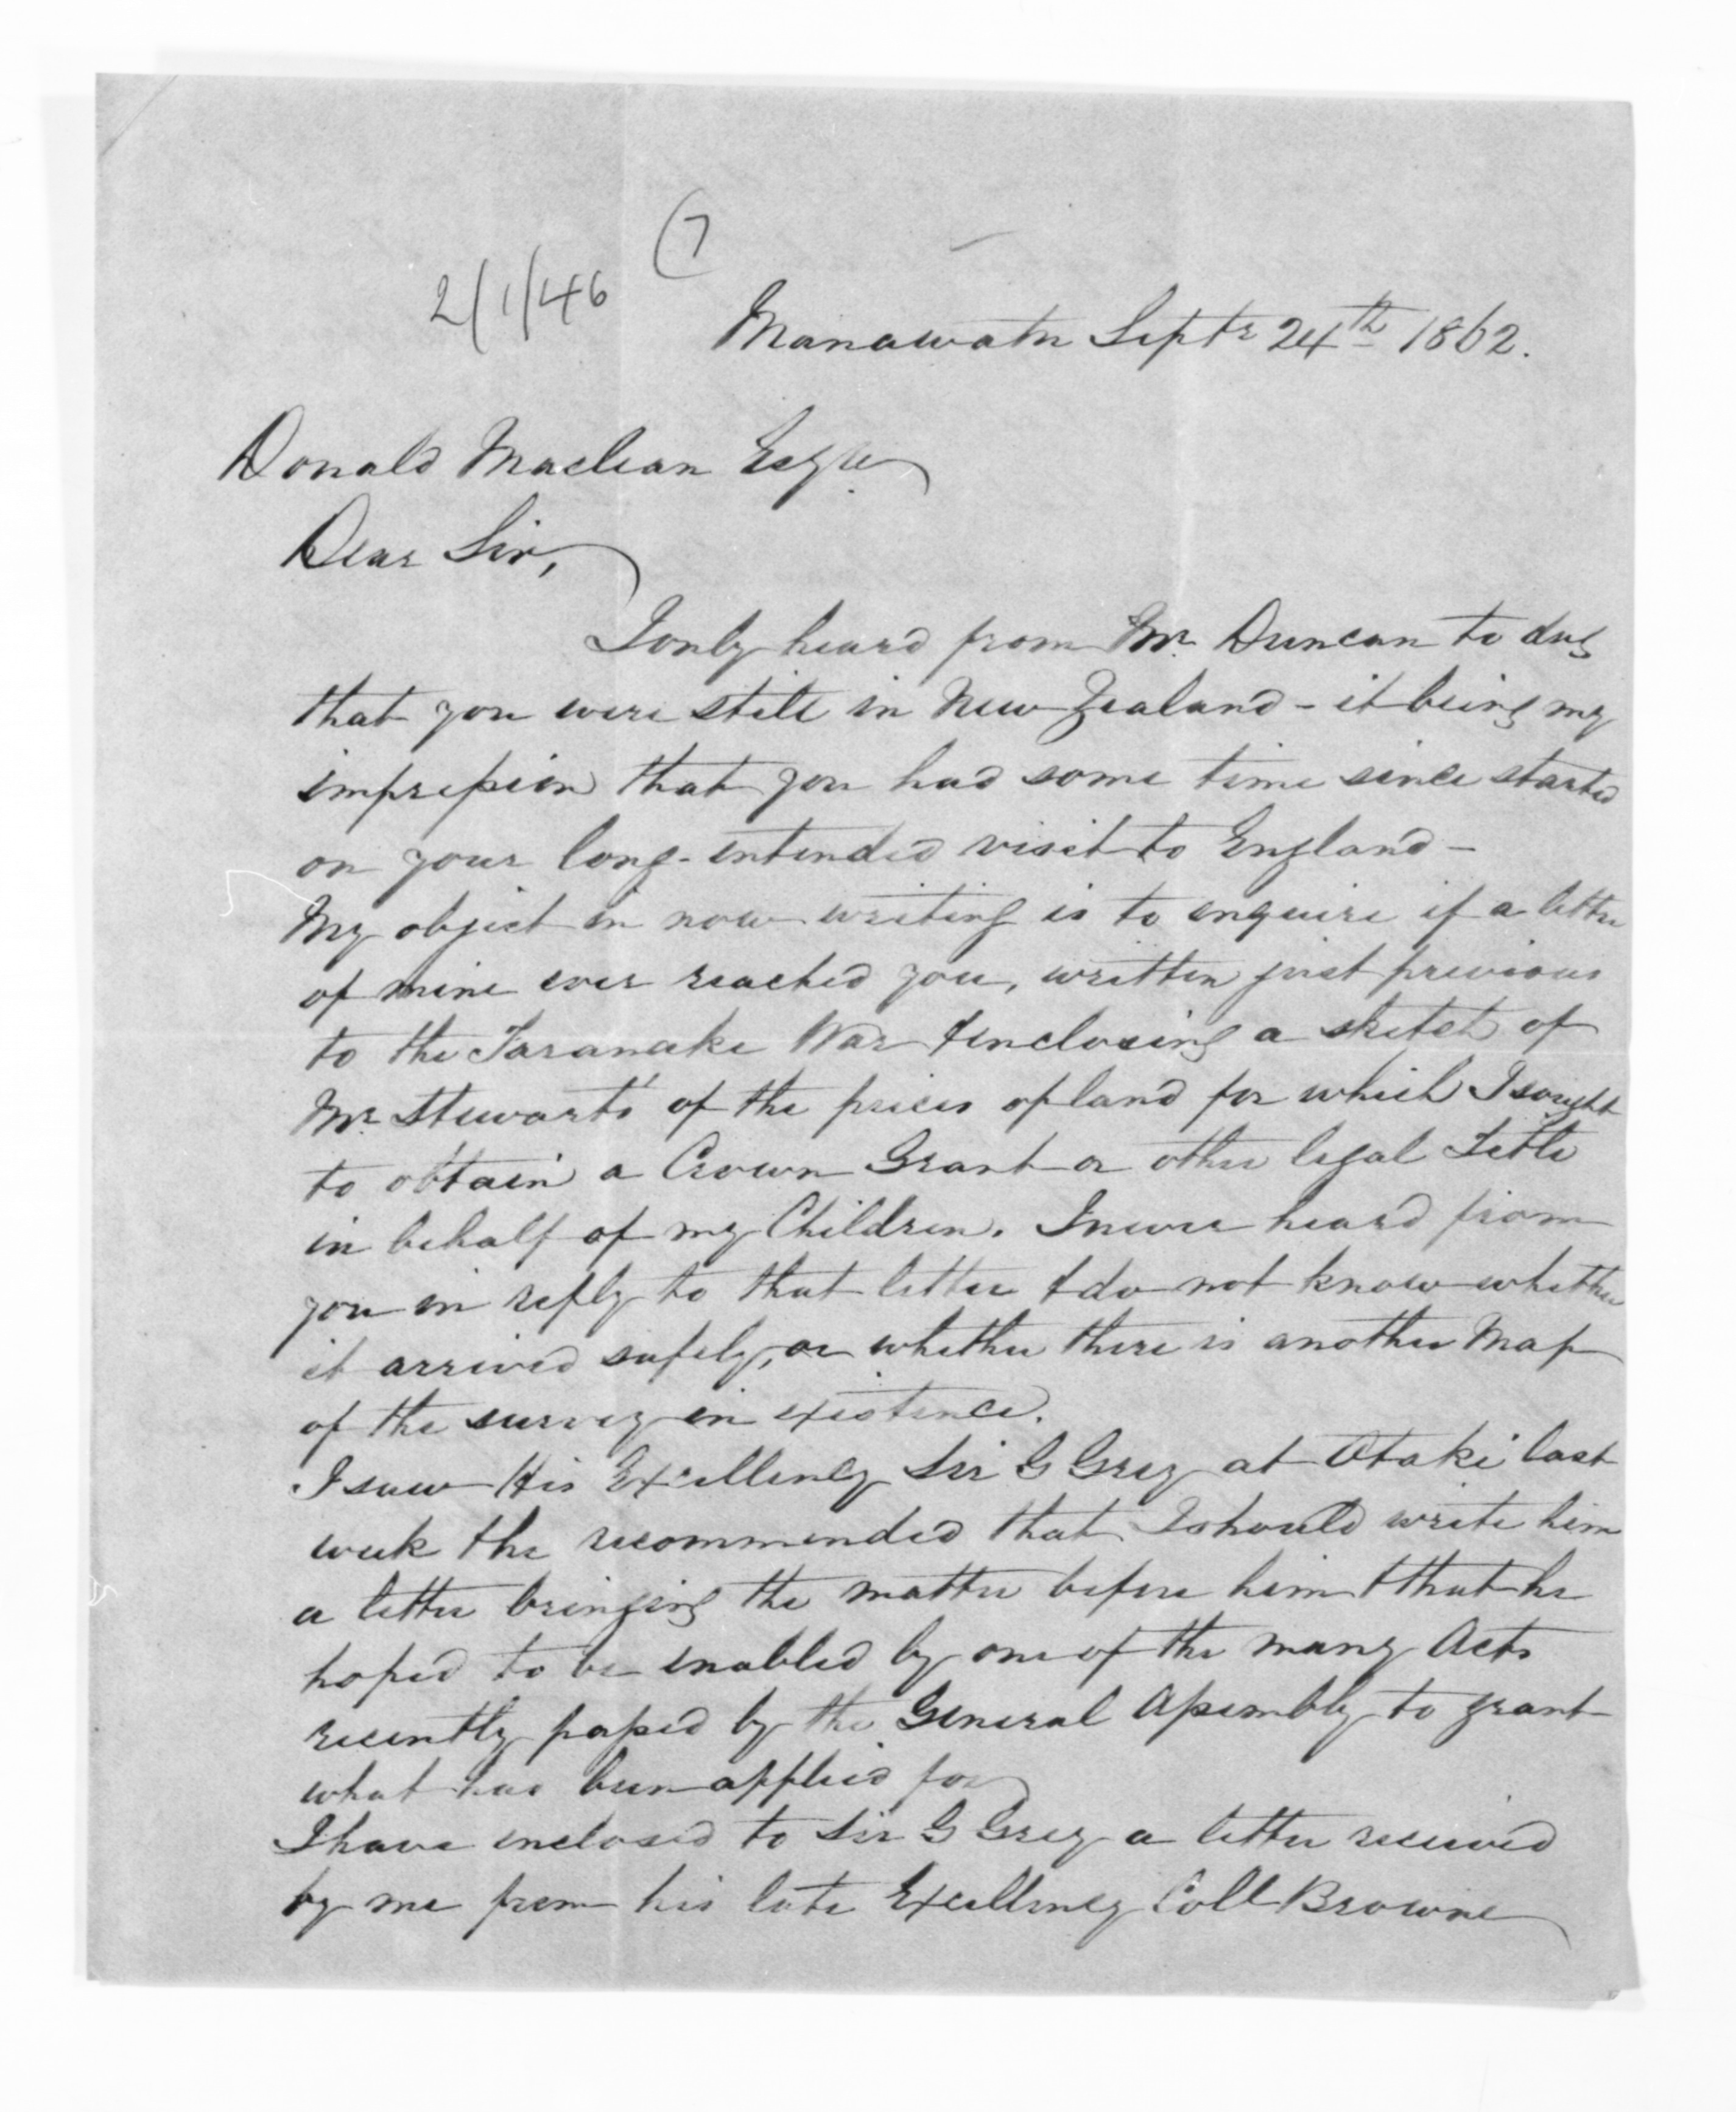 (7
2/1/46
Manawatu Septr 24th 1862.
Donald Maclean Esqre
Dear Sir,
I only heard from Mr. Duncan to day
that you were still in New Zealand - it being my
impression that you had some time since started
on your long-intended visit to England -
My object in now writing is to enquire if a letter
of mine ever reached you, written just previous
to the Taranaki War & inclosing a sketch of
Mr. Stewart's of the pieces of land for which I sought
to obtain a Crown Grant or other legal Title
in behalf of my Children. I never heard from
you in reply to that letter & do not know whether
it arrived safely, or whether there is another Map
of the survey in existence.
I saw His Excellency Sir G Grey at Otaki last
week & he recommended that I should write him
a letter bringing the matter before him & that he
hoped to be enabled by one of the many Acts
recently passed by the General Assembly to grant
what has been applied for
I have inclosed to Sir G Grey a letter received
by me from his late Excellency Coll Browne